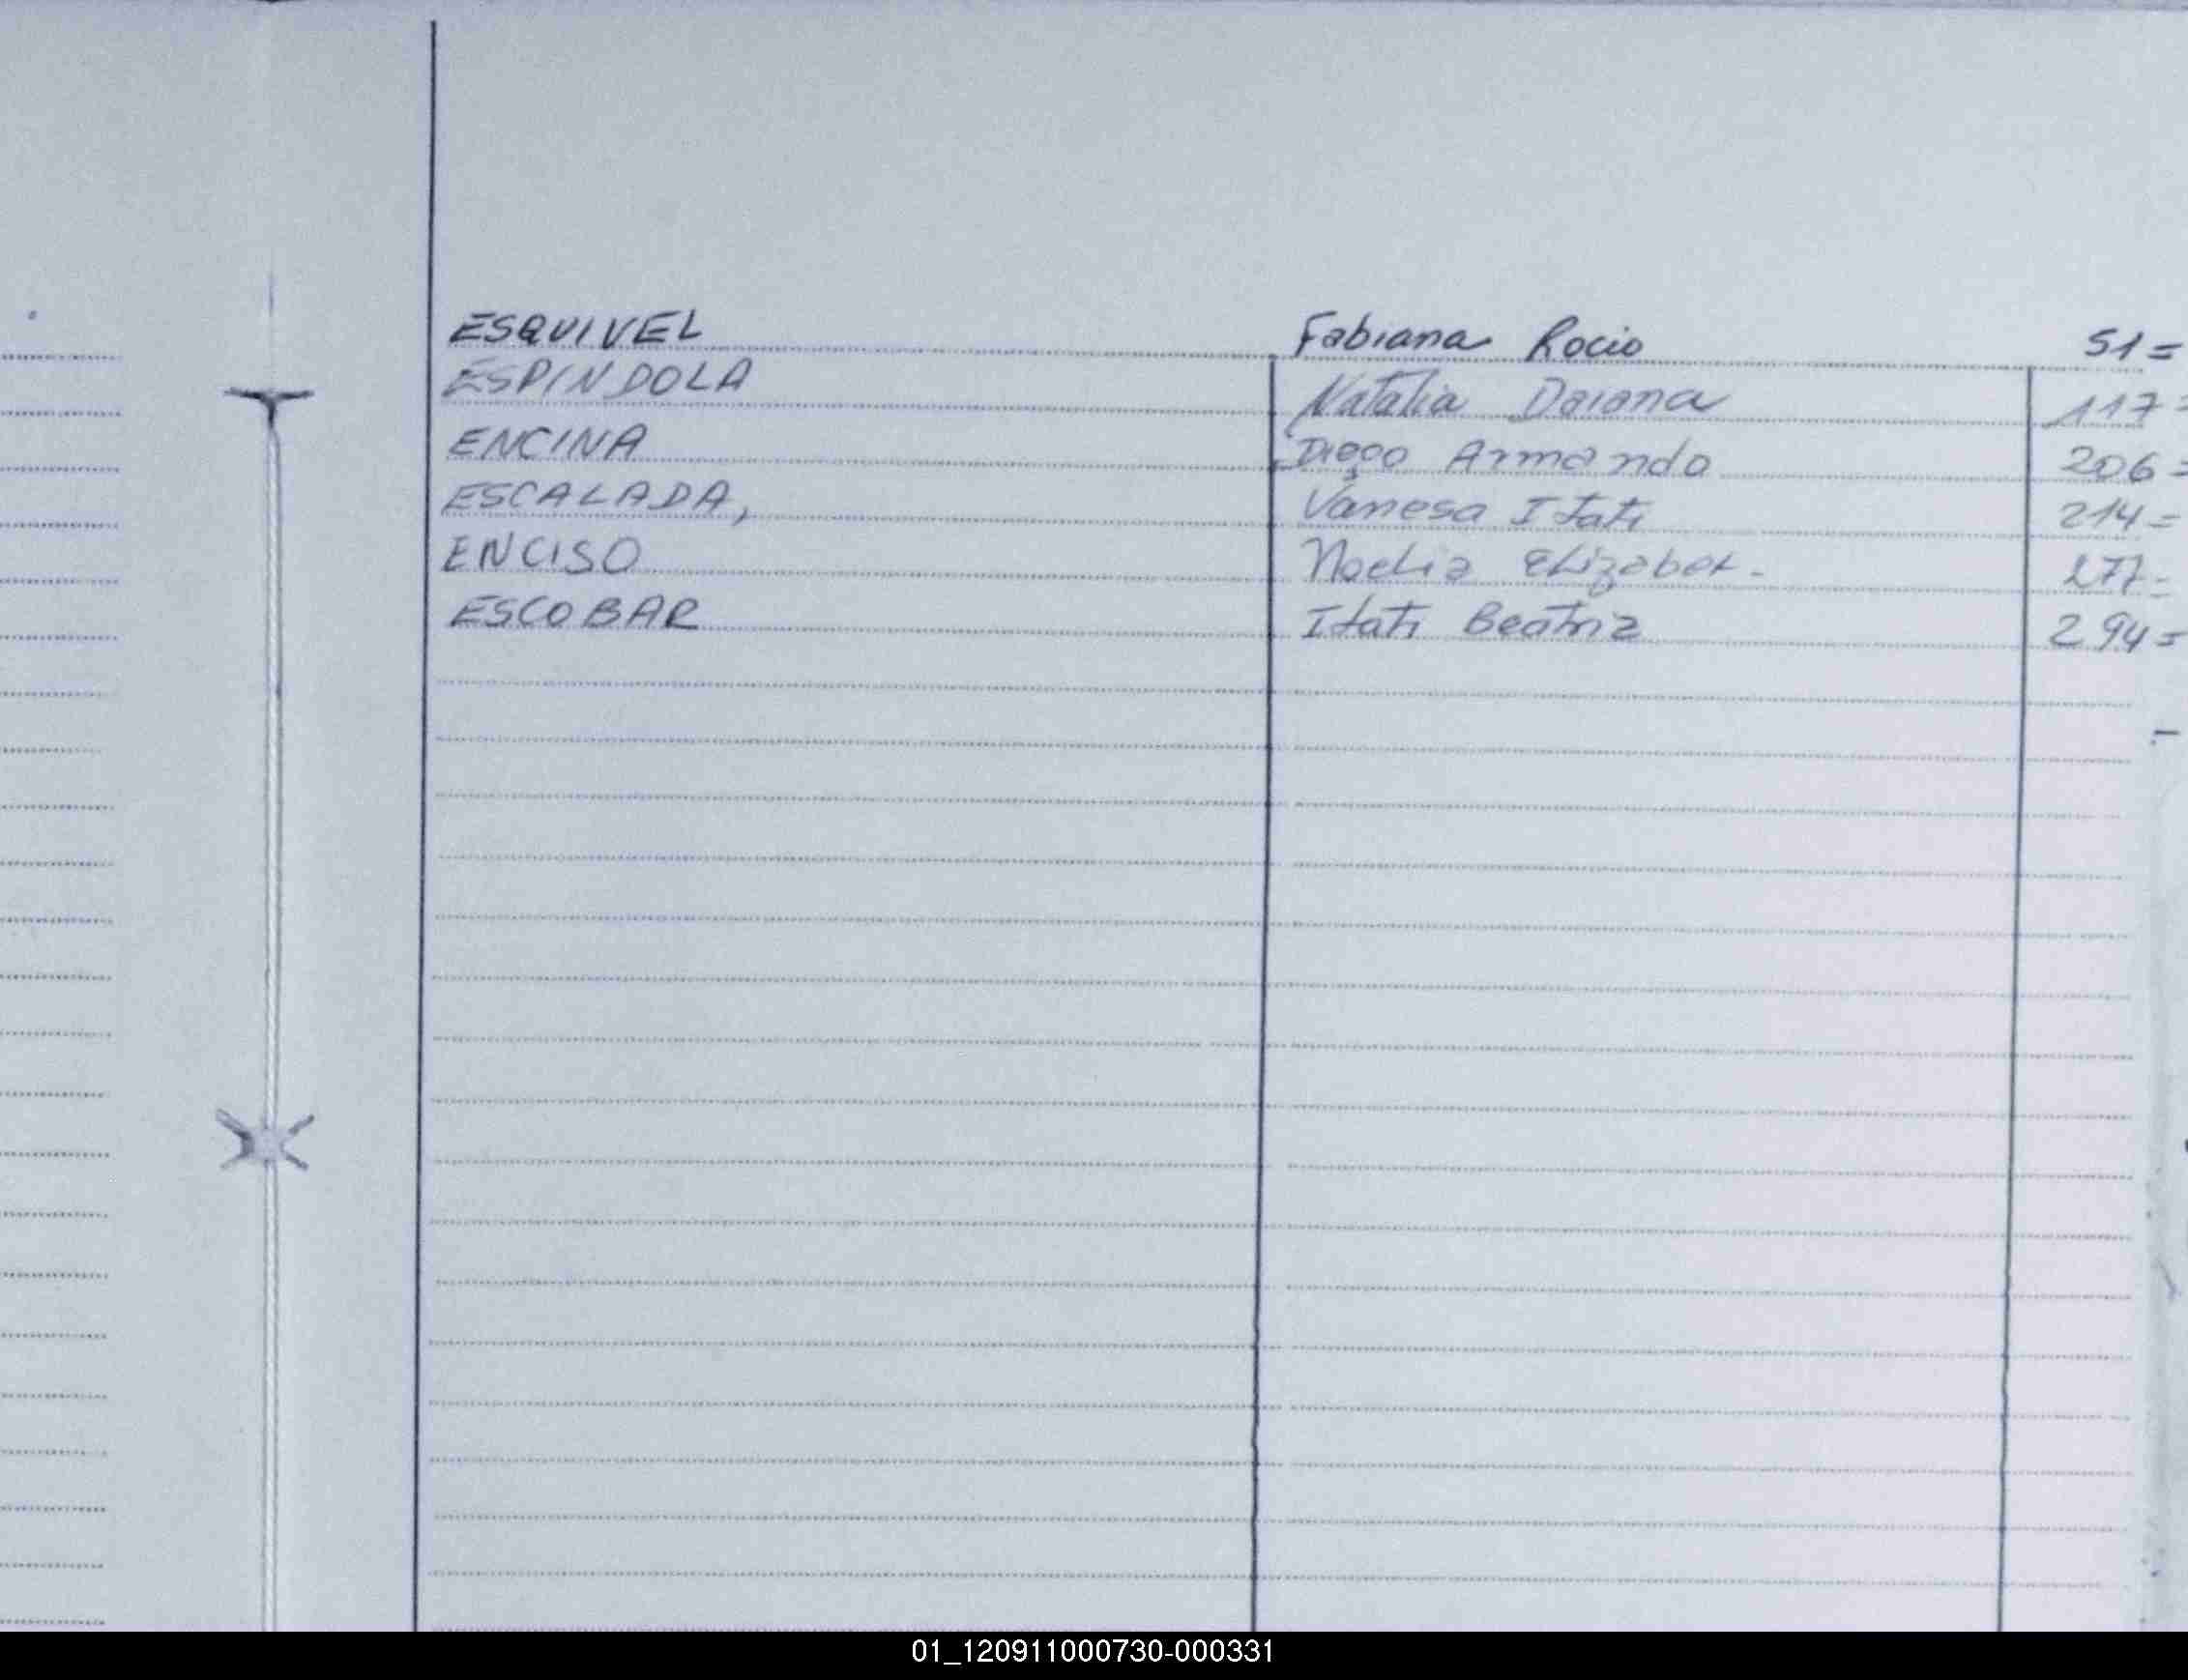 ESQUIVEL Fabiana Rocio 51=
ESPINDOLA Natalia Daiana 117=
ENCINA Diego Armando 206=
ESCALADA, Vanesa Itati 214=
ENCISO Noelia Elizabet- 277=
ESCOBAR Itati Beatriz 294=
01_120911000730-000331